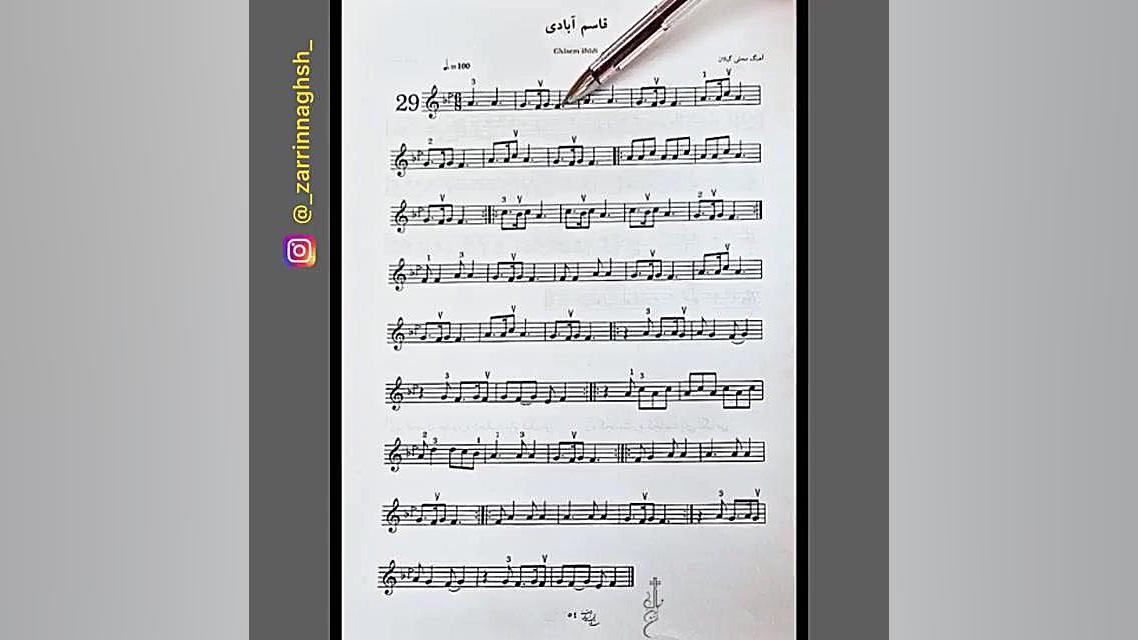 @_zarrinnaghsh_
قاسم آبادی
Ghasem Abadi
♩=100
آهنگ محلی گیلان
29